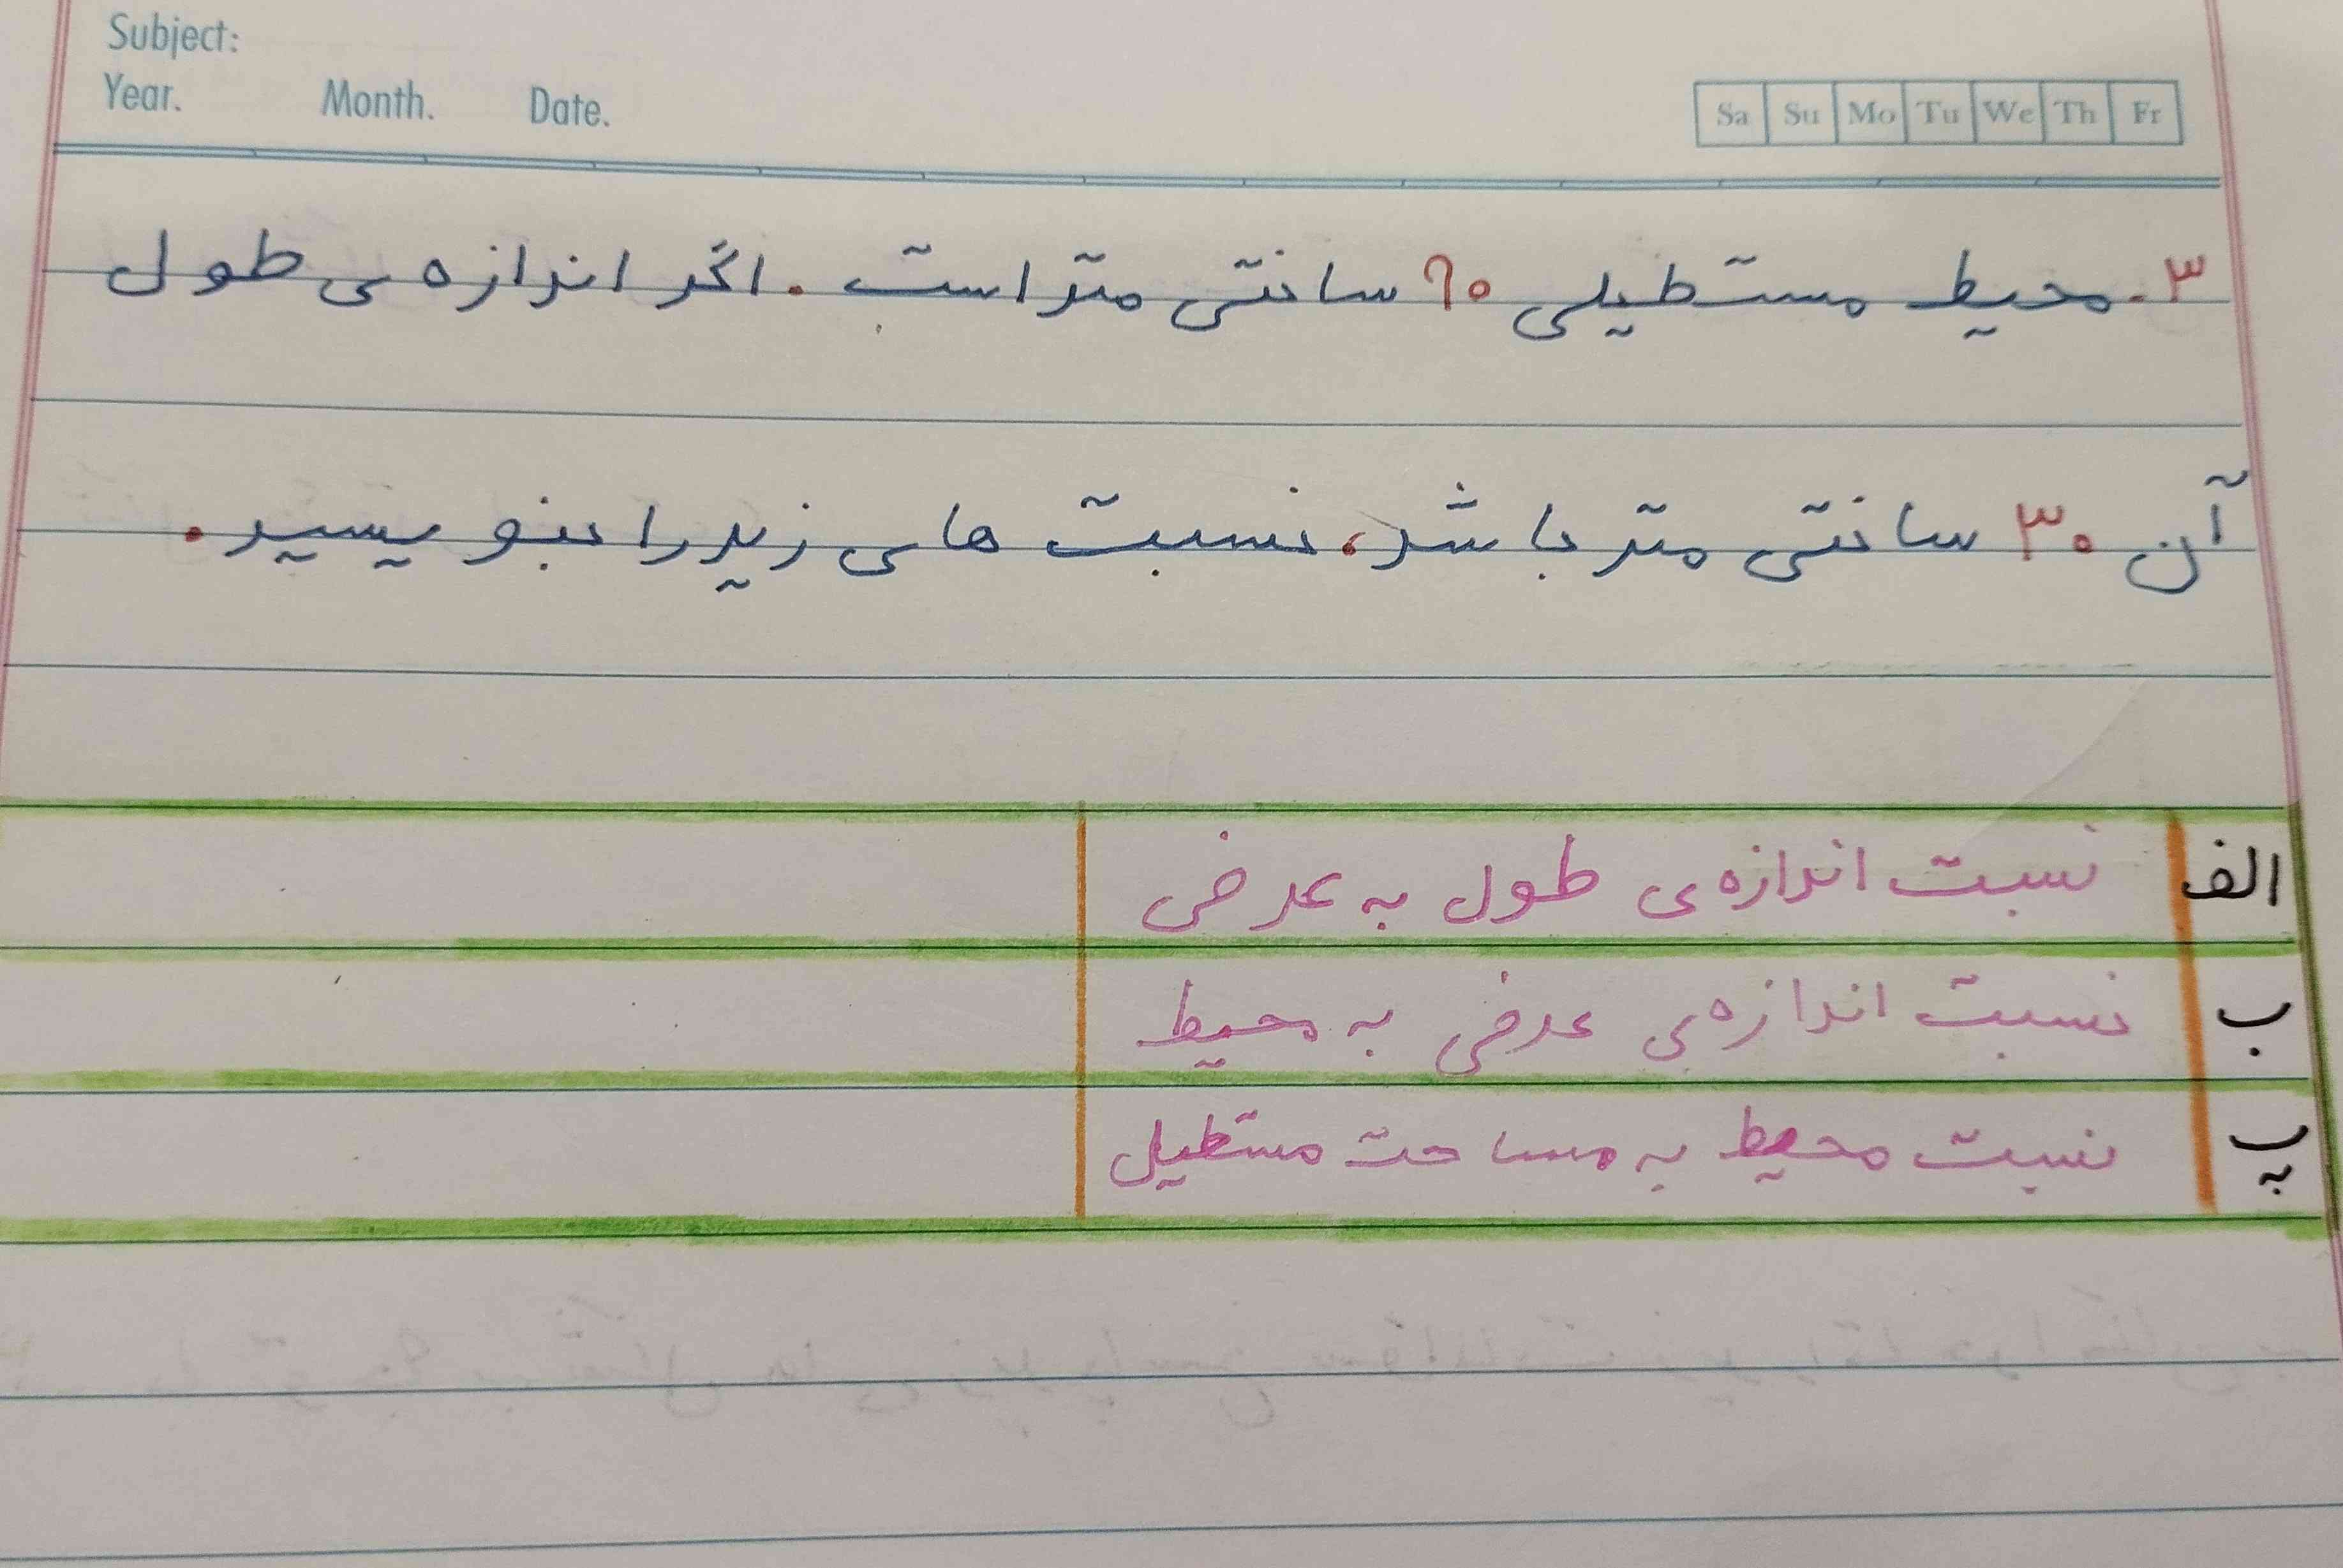 Subject:
Year. Month. Date.
Sa Su Mo Tu We Th Fr
۳. محیط مستطیلی ۹۰ سانتی متر است. اگر اندازه ی طول
آن ۳۰ سانتی متر باشد، نسبت های زیر را بنویسید.
الف نسبت اندازه ی طول به عرض
ب نسبت اندازه ی عرض به محیط
پ نسبت محیط به مساحت مستطیل